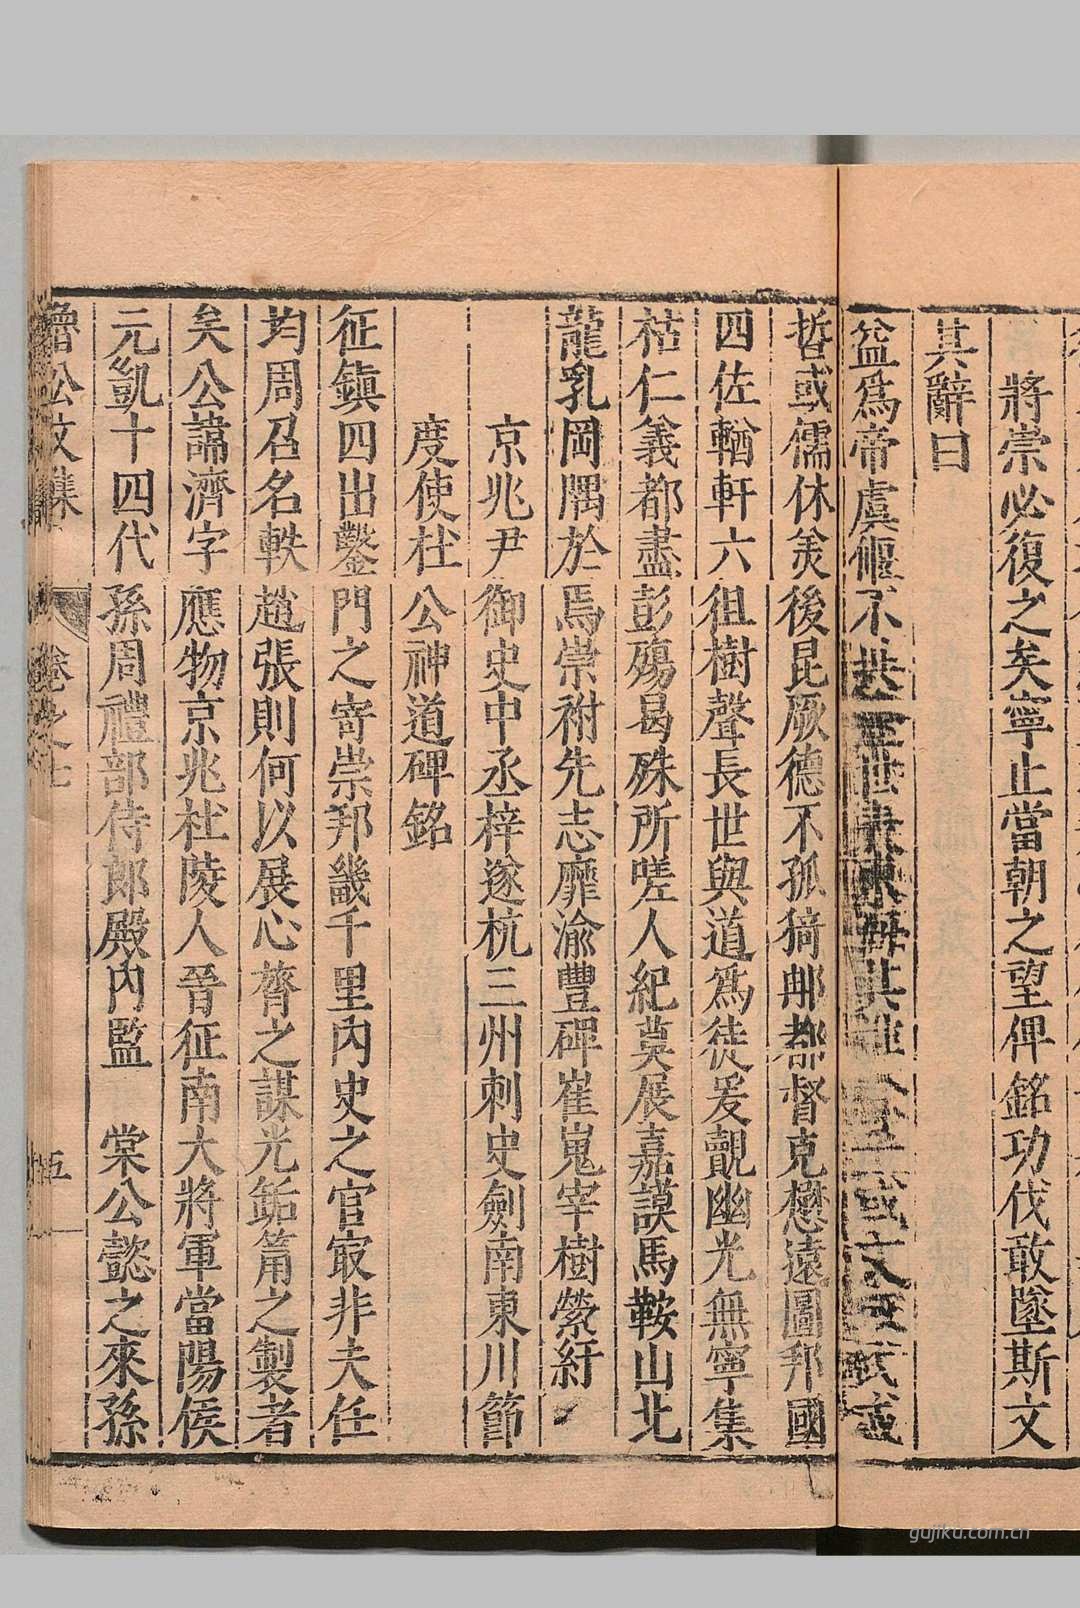 將崇必復之矣寧止當朝之望俾銘功伐敢墜斯文
其辭曰
益為帝虞偃不
或
哲或儒休羑後昆厥德不孤猗邮都督克懋遠圖邦國
四佐輶軒六徂樹聲長世與道為徒爰覿幽光無寧集
祜仁義都盡彭殤曷殊所嗟人紀莫展嘉謨馬鞍山北
龍乳岡隅於焉崇祔先志靡渝豐碑崔嵬宰樹縈紆
京兆尹御史中丞梓遂杭三州刺史劍南東川節
度使杜公神道碑銘
征鎮四出鑿門之寄崇邦畿千里內史之官㝡非夫任
均周召名軼趙張則何以展心膂之謀光鉐筩之製者
矣公諱濟字應物京兆杜陵人晉征南大將軍當陽侯
元凱十四代孫周禮部侍郎殿內監棠公懿之來孫
魯公文集 卷之七 五
gujiku.com.cn